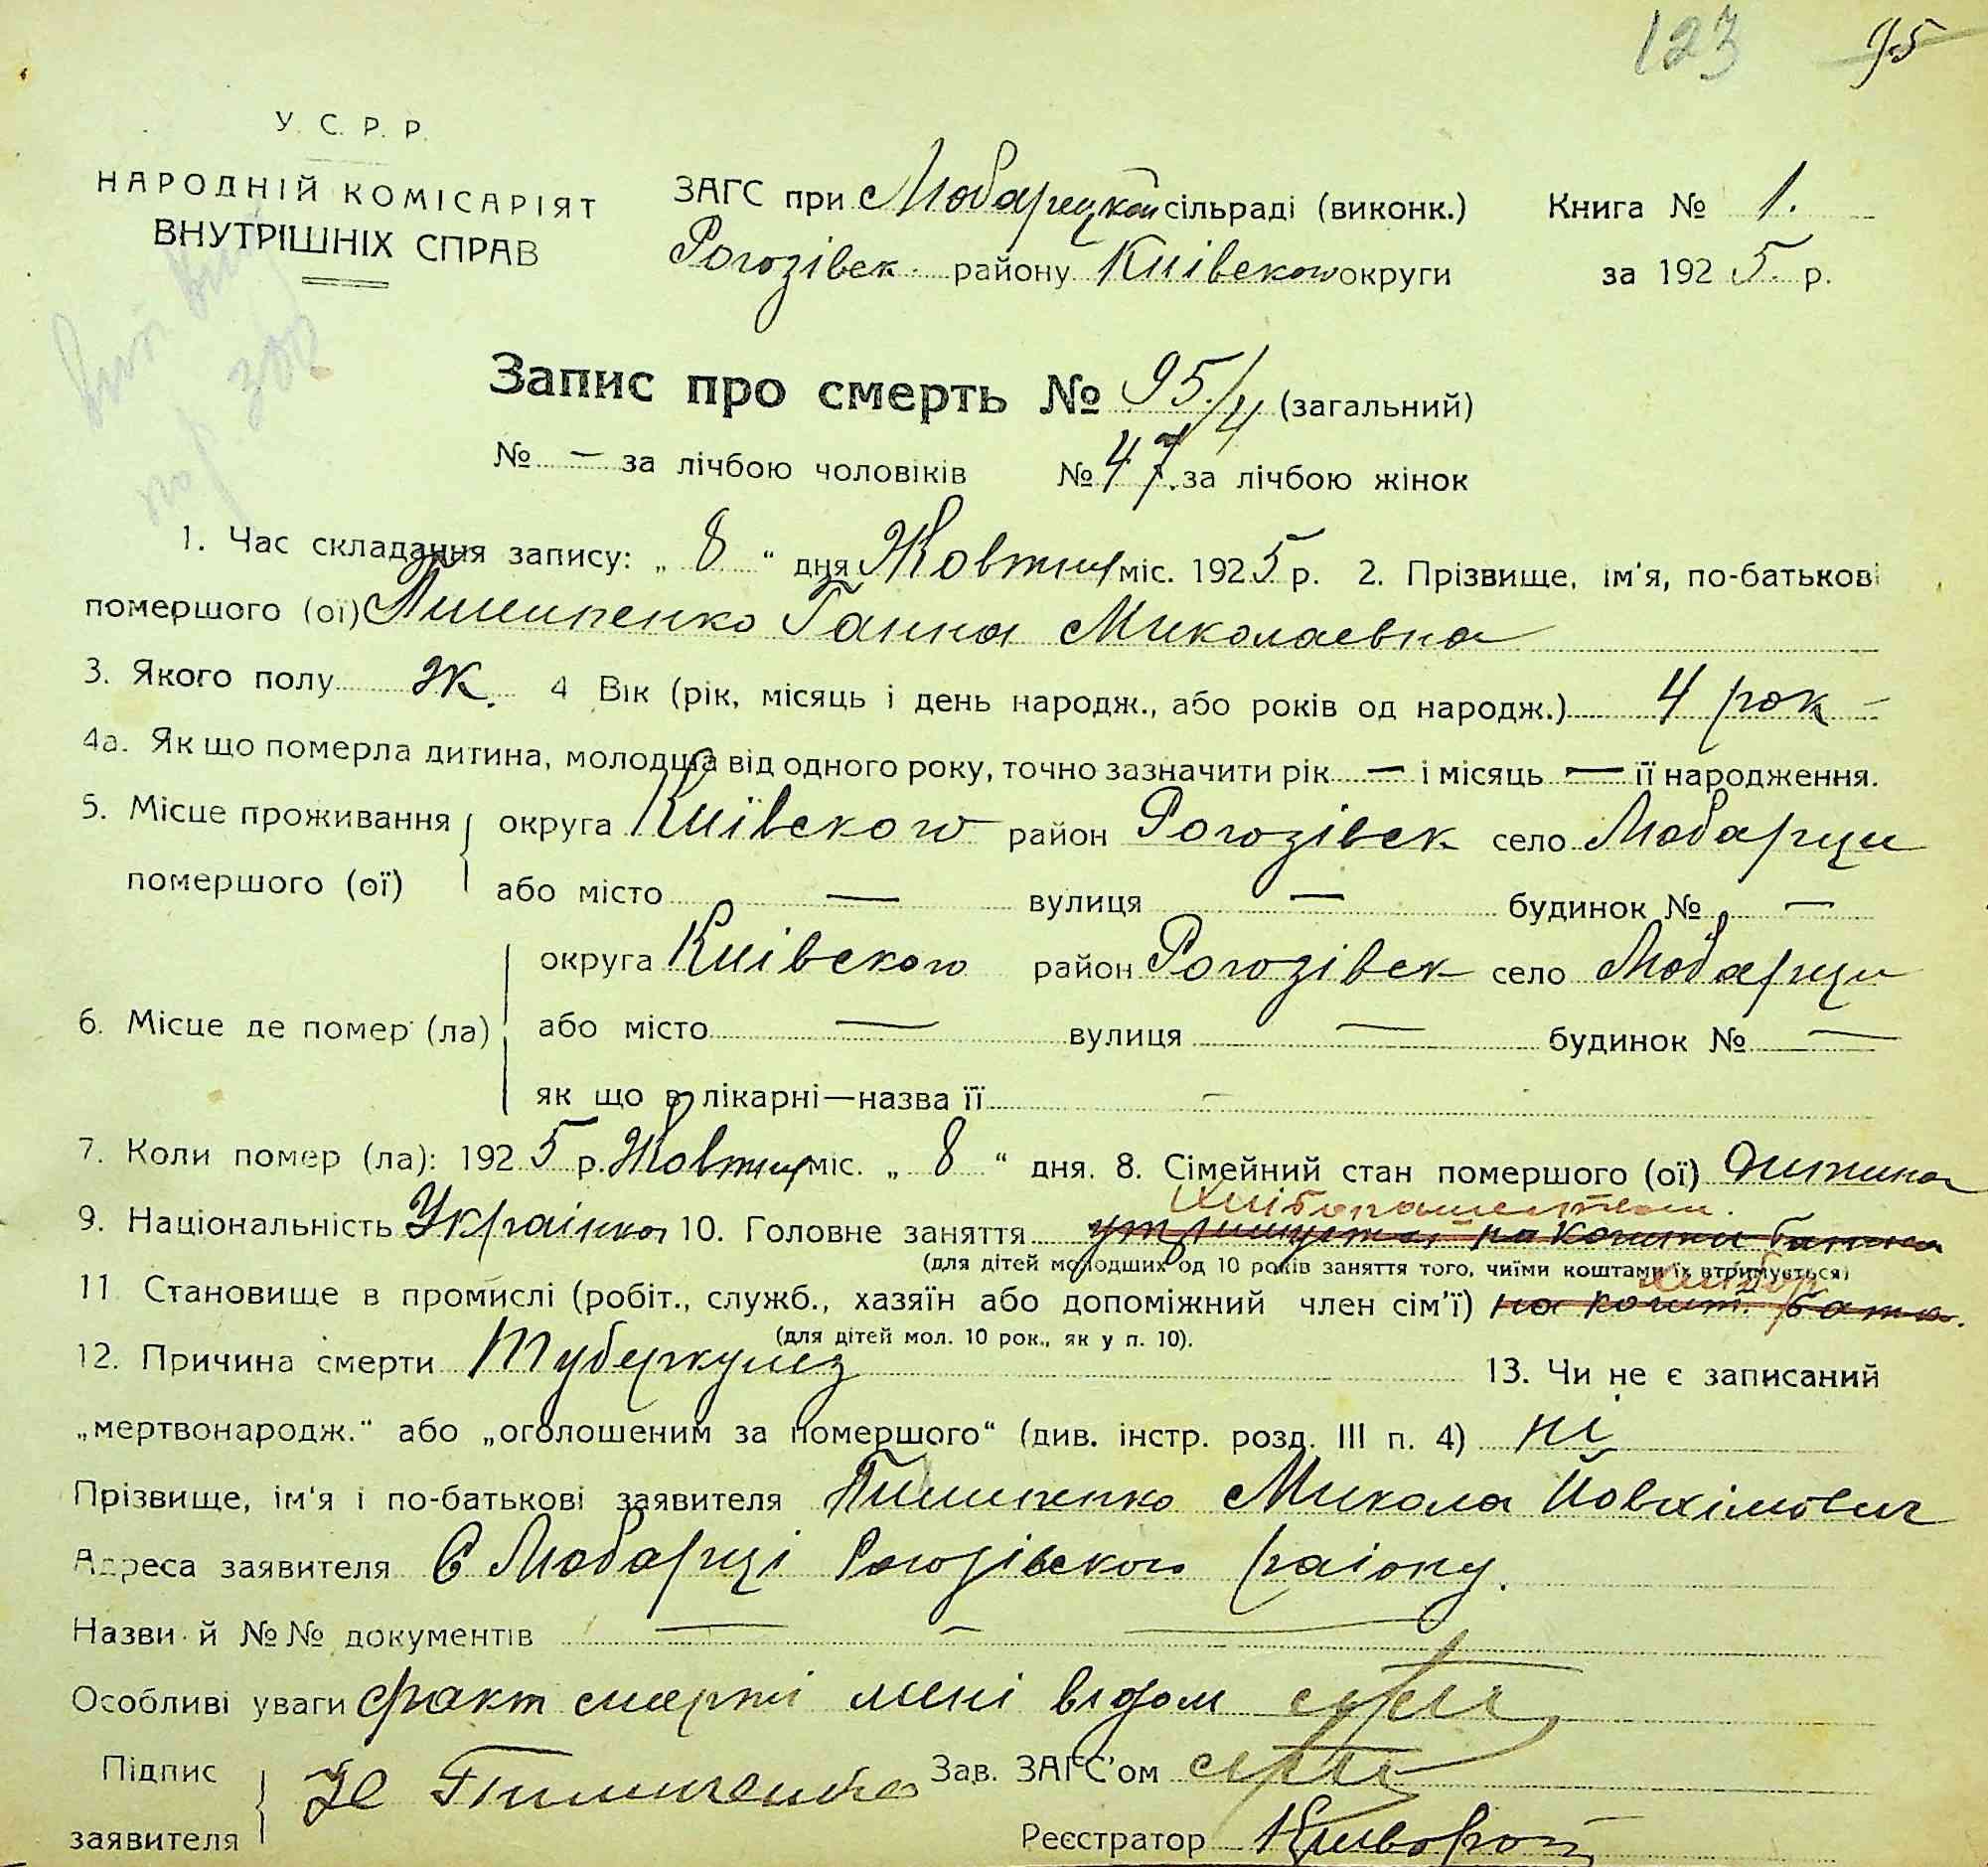 123 95
У. С. Р. Р.
НАРОДНІЙ КОМІСАРІЯТ
ВНУТРІШНІХ СПРАВ
ЗАГС при Любарецкой сільраді (виконк.) Книга № 1.
Рогозівск. району Київского округи за 1925. р.
Запис про смерть № 95/4 (загальний)
№ — за лічбою чоловіків № 47. за лічбою жінок
1. Час складання запису: „ 8 “ дня Жовтня міс. 1925 р. 2. Прізвище, ім'я, по-батькові
помершого (ої) Пилипенко Ганна Миколаевна
3. Якого полу ж. 4 Вік (рік, місяць і день народж., або років од народж.) 4 рок —
4а. Як що померла дитина, молодша від одного року, точно зазначити рік — і місяць — її народження.
5. Місце проживання округа Київского район Рогозівск село Любарци
помершого (ої) або місто — вулиця — будинок № —
округа Київского район Рогозівск село Любарци
6. Місце де помер (ла) або місто — вулиця — будинок № —
як що в лікарні—назва її —
7. Коли помер (ла): 1925 р. Жовтня міс. „ 8 “ дня. 8. Сімейний стан помершого (ої) дитина
хліборашеством.
9. Національність Українка 10. Головне заняття утримуется на кошти батька
(для дітей молодших од 10 років заняття того, чиїми коштами їх втримується)
11 Становище в промислі (робіт., служб., хазяїн або допоміжний член сім'ї) на кошт. бата.
(для дітей мол. 10 рок., як у п. 10).
12. Причина смерти Туберкулез 13. Чи не є записаний
„мертвонародж.“ або „оголошеним за помершого“ (див. інстр. розд. III п. 4) ні
Прізвище, ім'я і по-батькові заявителя Пилипенко Микола Йовхімович
Адреса заявителя С Любарці Рогозівского раіону.
Назви й №№ документів — — —
Особливі уваги факт смерті мені відом
Підпис
заявителя Н Пилипенко Зав. ЗАГС'ом
Реєстратор